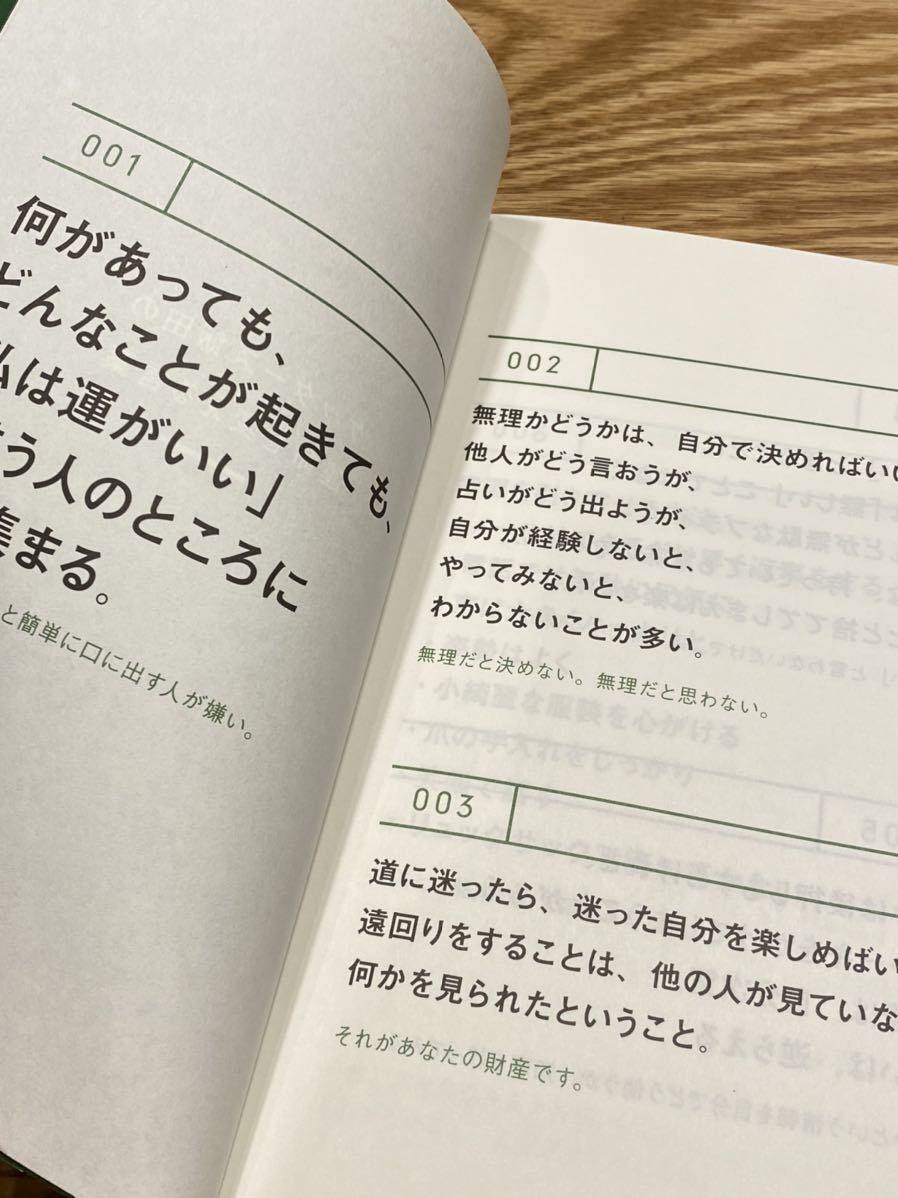 001
何があっても、
どんなことが起きても、
私は運がいい」
言う人のところに
集まる。
と簡単に口に出す人が嫌い。
002
無理かどうかは、自分で決めればいい
他人がどう言おうが、
占いがどう出ようが、
自分が経験しないと、
やってみないと、
わからないことが多い。
無理だと決めない。無理だと思わない。
003
道に迷ったら、迷った自分を楽しめばい
遠回りをすることは、他の人が見ていな
何かを見られたということ。
それがあなたの財産です。